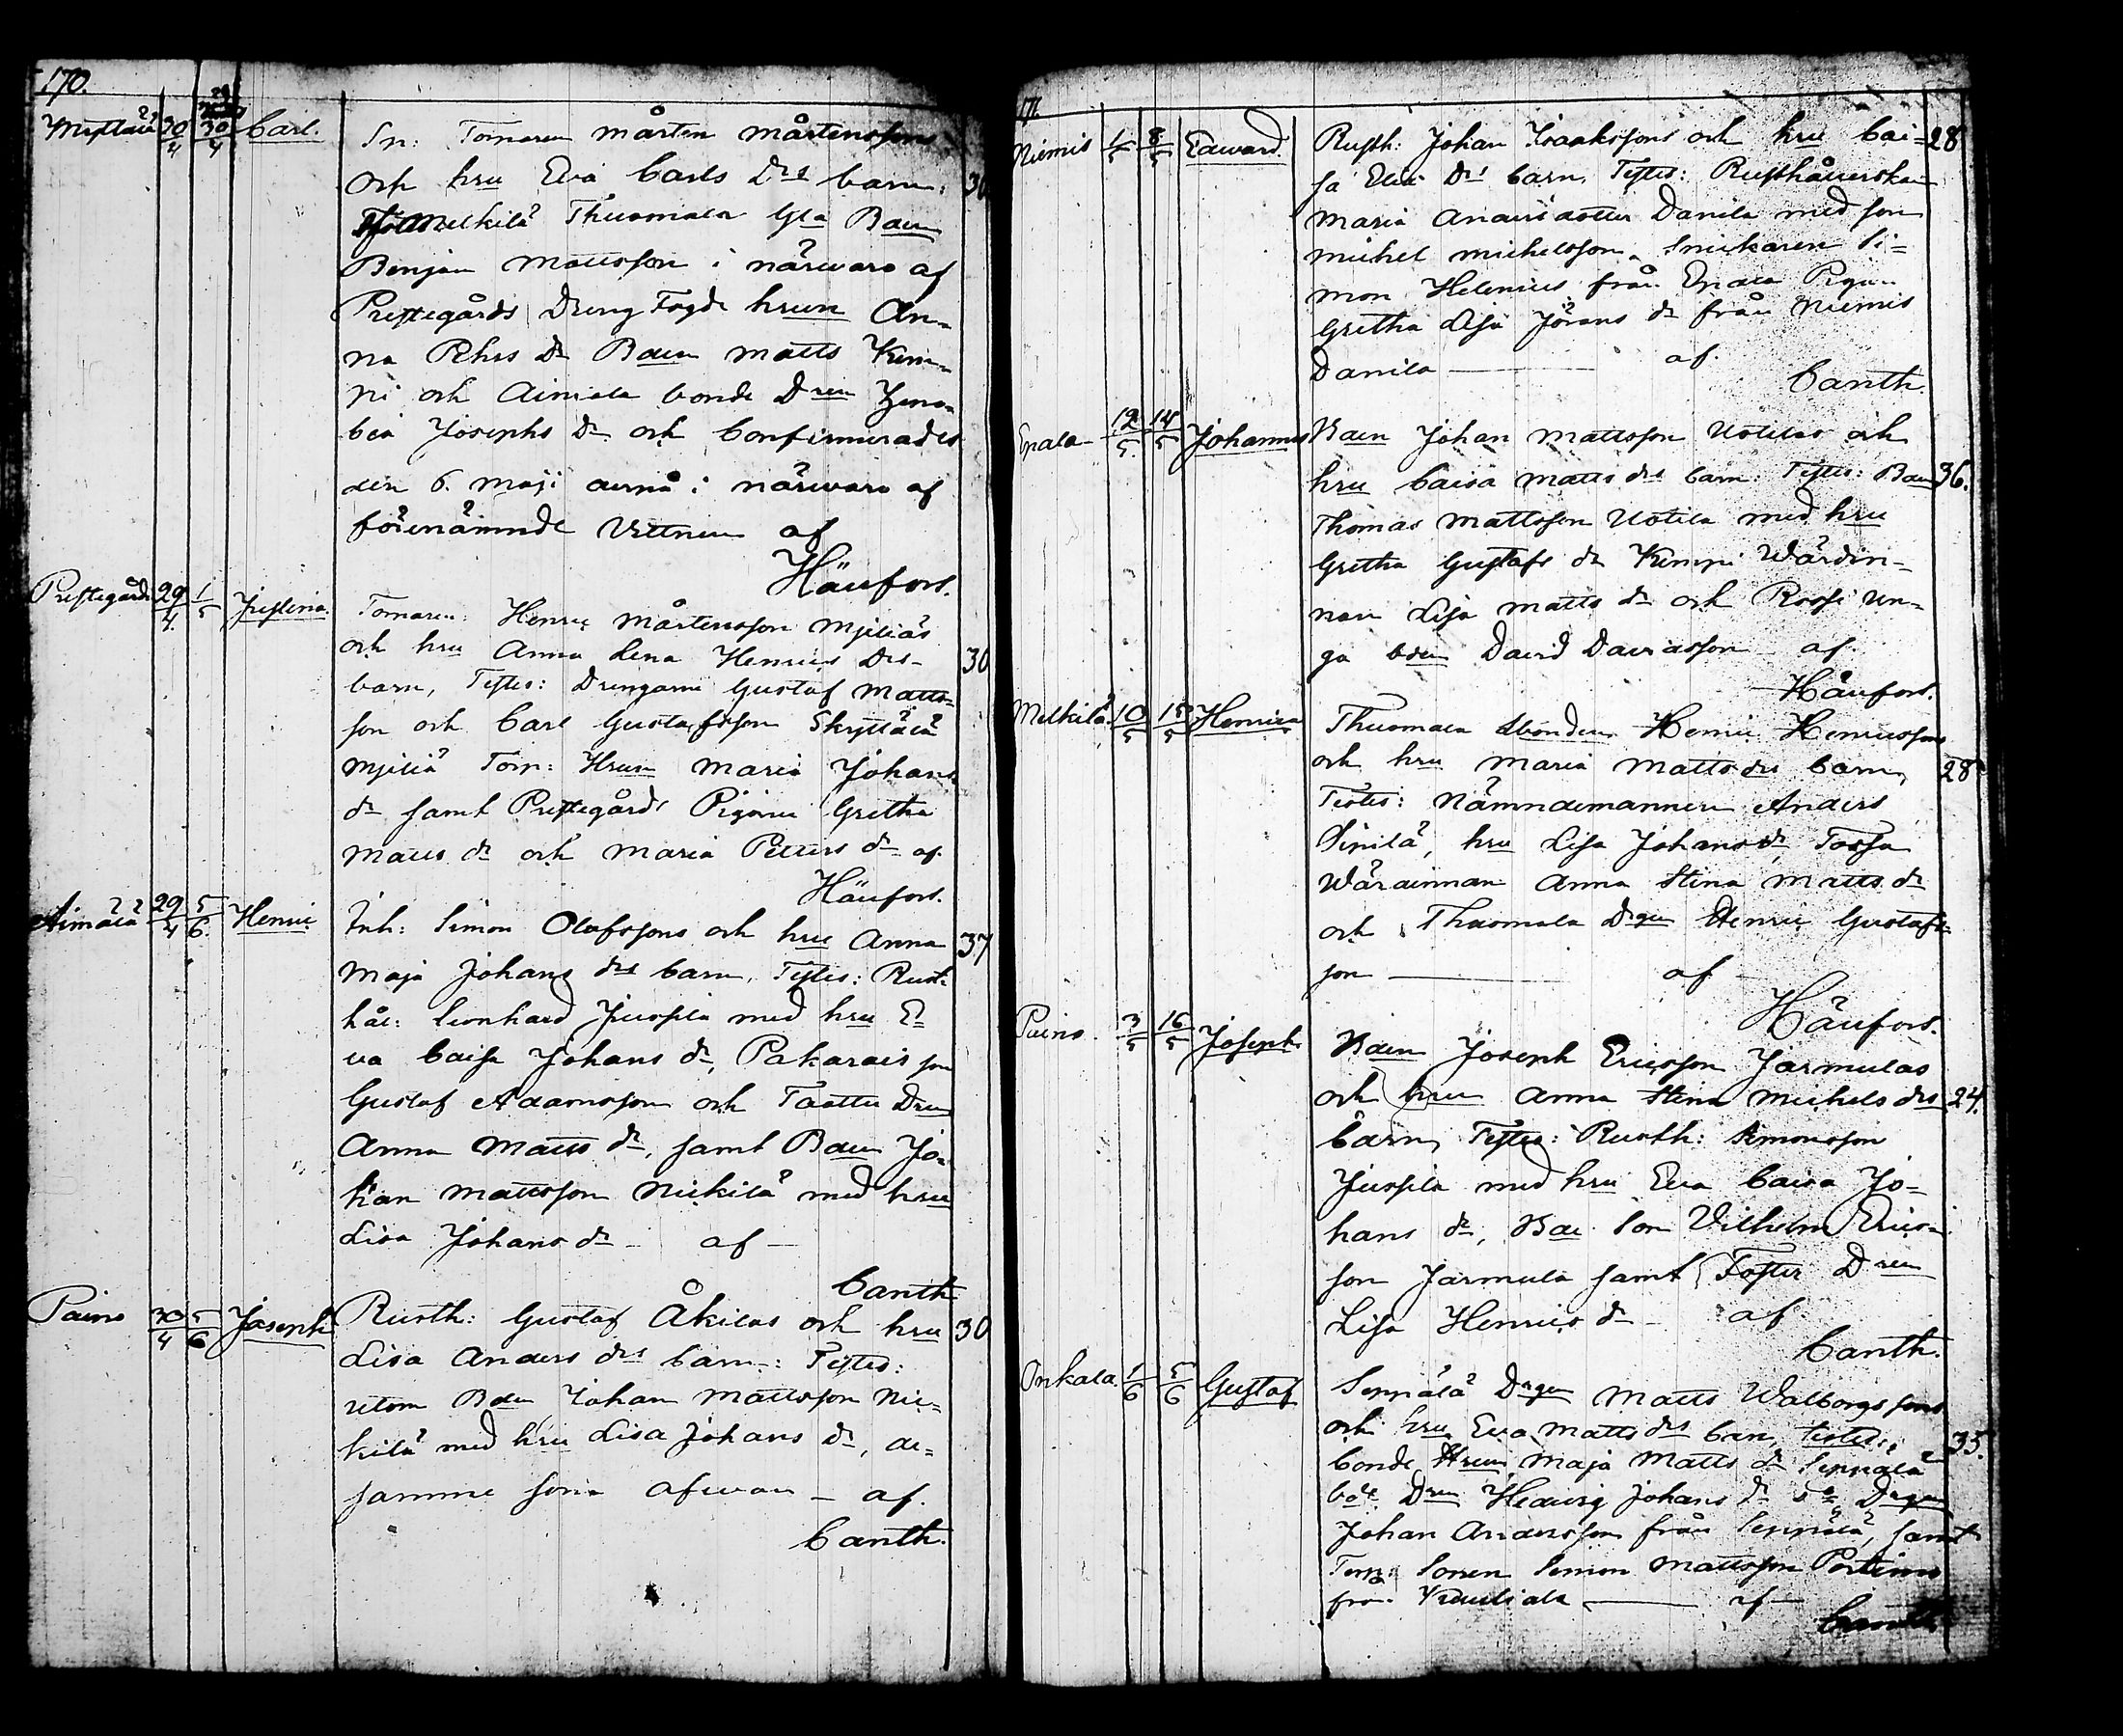 170.
30/4 30/4 Carl. Sn: Tornaren Mårten Mårtenssons
och hru Eva Carls Drs barn: 30
Melkilä Thuomala Gla Baen
Benjam Mattsson i närwaro af
Prestegårds Dreng Fogde hrun An-
na Drs Baen Matts Kem-
pi och Aimala bonde Dren Zeno-
bia Josephs Dr och Confirmerades
den 6. Maji i närwaro af
förenämnde Vittnen af
Häufors.
Prestegård 29/4 1/5 Justina. Tornaren: Henric Mårtensson Mjiliäs
och hru Anna Lena Henrics Drs 30
barn, Testes: Drengarne Gustaf Matts-
son och Carl Gustafsson Skyttälä
Mjiliä Torp: Hrun Maria Johans
dr samt Prestegårds Pigorne Gretha
Matts dr och Maria Petters dr af
Häufors.
Aimälä 29/4 5/6 Henric Inh: Simon Olofssons och hru Anna 37
Maja Johans drs barn, Testes: Rust-
hål: Leonhard Juspila med hru E-
va Caisa Johans dr, Pakarais son
Gustaf Adamsson och Taatti Dren
Anna Matts dr, samt Baen Jo-
han Mattsson Nickilä med hru
Lisa Johans dr - af -
Canth
Paino 30/4 5/6 Joseph Rusth: Gustaf Åkilas och hru 30
Lisa Anders drs barn: Testes:
utom Baen Johan Mattsson Nic-
kilä med hru Lisa Johans dr, de-
samme som ofwan - af.
Canth.
171.
Niemis 1/5 8/5 Edward. Rusth: Johan Isaakssons och hru Cai- 28
sa Elia Drs barn, Testes: Rusthållerskan
Maria Andersdotter Danila med son
Michel Michelsson, Snickaren Si-
mon Helenius från Epala Pigan
Gretha Lisa Jörans dr från Niemis
Danila - af.
Canth.
Epala 12/5 14/5 Johannes Baen Johan Mattsson Uotilas och
hru Caisa Matts drs barn. Testes: Baen 36.
Thomas Mattsson Uotila med hru
Gretha Gustafs dr Kemppi Wärdin-
nan Lisa Matts dr och Rossi un-
ga bden David Davidsson af.
Häufors.
Melkilä. 10/5 15/5 Henrica Thuomala Bonden Henric Henricssons
och hru Maria Matts drs barn, 28
Testes: Nämndemannen Anders
Sipilä, hru Lisa Johans dr, Tossa
Wärdinnan Anna Stina Matts dr
och Thuomala Drgen Henric Gustafs-
son - af
Häufors.
Paino 3/5 16/5 Joseph Baen Joseph Ericsson Jarmulas
och hru Anna Stina Michels drs 24.
barn, Testes: Rusth: Simonsson
Juspila med hru Eva Caisa Jo-
hans dr, Bde Son Vilhelm Erics-
son Jarmula samt Foster Dren
Lisa Henrics dr - af
Canth.
Onkala. 1/6 5/6 Gustaf Seppälä Drgen Matts Walborgssons
och hru Eva Matts drs barn, testes: 35.
bonde Hrun Maja Matts dr Seppälä
bde Dren Hedwig Johans dr Drgen
Johan Andersson från Seppälä, samt
Torp: Sonen Simon Mattsson Portimo
från - af
Canth.